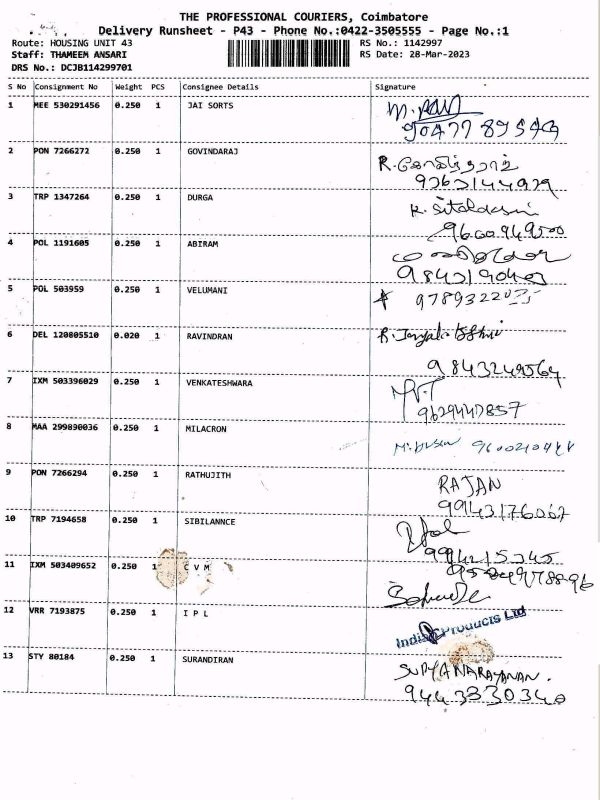 THE PROFESSIONAL COURIERS, Coimbatore
Delivery Runsheet - P43 - Phone No.:0422-3505555 - Page No.:1
Route: HOUSING UNIT 43 RS No.: 1142997
Staff: THAMEEM ANSARI RS Date: 28-Mar-2023
DRS No.: DCJB114299701
S No Consignment No Weight PCS Consignee Details Signature
1 MEE 530291456 0.250 1 JAI SORTS
2 PON 7266272 0.250 1 GOVINDARAJ
3 TRP 1347264 0.250 1 DURGA
9600949500
4 POL 1191605 0.250 1 ABIRAM
5 POL 503959 0.250 1 VELUMANI
6 DEL 120805510 0.020 1 RAVINDRAN
9843249564
7 IXM 503396029 0.250 1 VENKATESHWARA
9629447857
8 MAA 299890036 0.250 1 MILACRON
9 PON 7266294 0.250 1 RATHUJITH RAJAN
9943176067
10 TRP 7194658 0.250 1 SIBILANNCE
9994215345
11 IXM 503409652 0.250 1 C V M
12 VRR 7193875 0.250 1 I P L
Products Ltd
13 STY 80184 0.250 1 SURANDIRAN SURYANARAYANAN.
9443330340